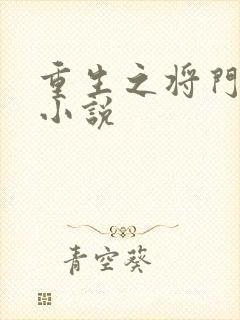 重生之将門
小説
青空葵